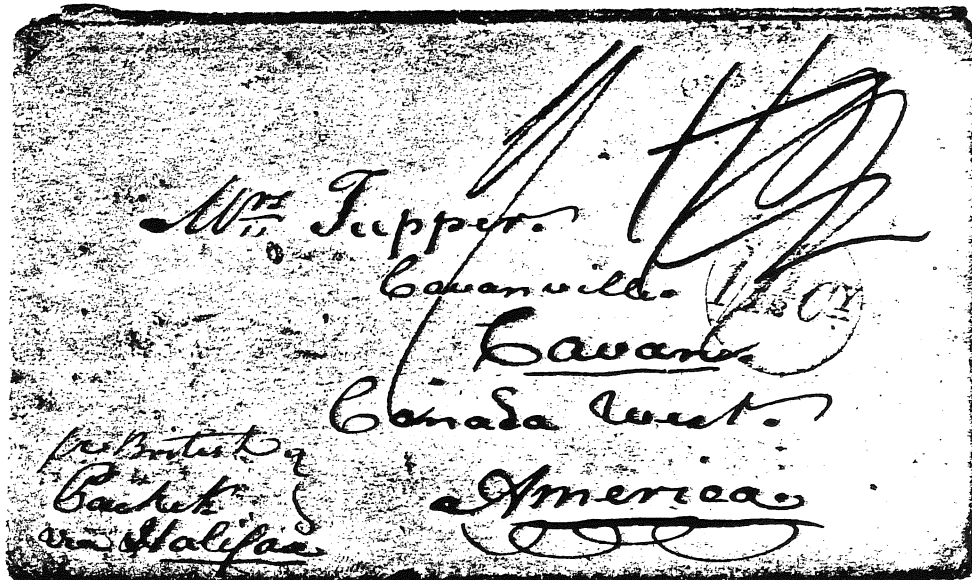 Mrs Tupper.
Cavanville.
Cavan.
Canada West.
America.
pr British
Packet
via Halifax